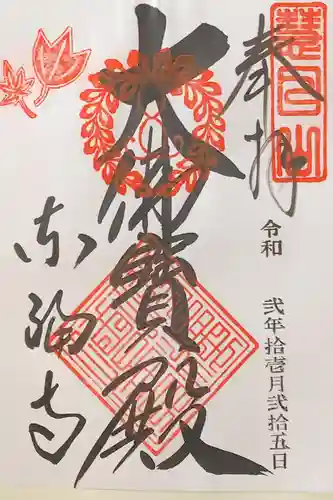 奉拝
慧日山
令和 弐年拾壱月弐拾五日
大佛寶殿
東福寺